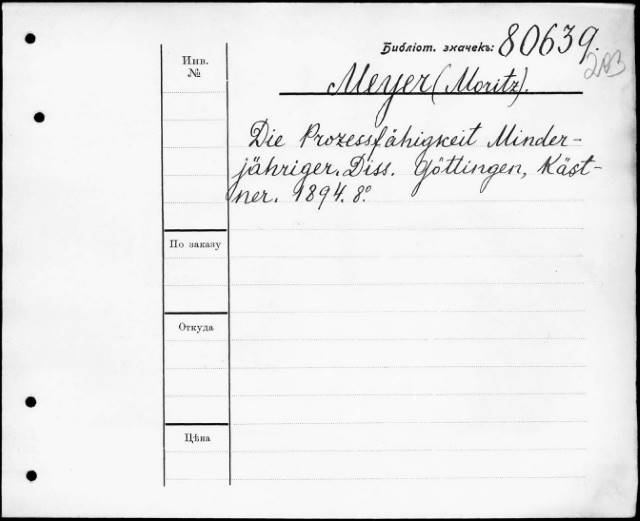 Библіот. значекъ: 80639.
203
Инв.
№
Meyer (Moritz).
Die Prozessfähigkeit Minder-
jähriger. Diss. Göttingen, Käst-
ner. 1894. 8°.
По заказу
Откуда
Цѣна